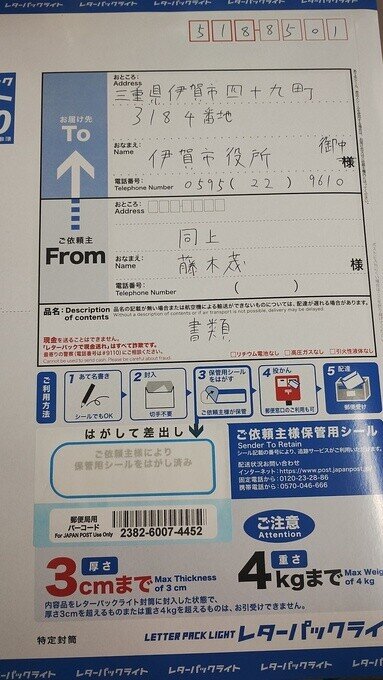 レターパックライト レターパックライト レターパックライト
5188501
お届け先
To
おところ:
Address
三重県伊賀市四十九町
3184番地
おなまえ:
Name
伊賀市役所 御中
様
電話番号:
Telephone Number 0595( 22 ) 9610
ご依頼主
From
おところ:
Address
同上
おなまえ:
Name
藤木茂
様
電話番号:
Telephone Number ( )
品名: Description of contents
品名の記載が無い場合または航空機による輸送ができないものについては、配達が遅れる場合があります。
Without a description of contents, or if air transport is not possible, delivery may be delayed.
書類
現金を送ることはできません。
「レターパックで現金送れ」はすべて詐欺です。
最寄りの警察(電話番号は#9110)にご相談ください。
□リチウム電池なし □高圧ガスなし □引火性液体なし
ご利用方法
1 あて名書き
シールでもOK
2 封入
切手不要
3 保管用シールをはがす
ご依頼主様が保管
4 投かん
郵便窓口のご利用も可
5 配達
郵便受け
はがして差出し
ご依頼主様により
保管用シールをはがし済み
ご依頼主様保管用シール
Sender To Retain
シール記載の番号により、追跡サービスがご利用いただけます。
配送状況お問い合わせ
インターネット: https://www.post.japanpost.jp/
固定電話から: 0120-23-28-86
携帯電話から: 0570-046-666
郵便局用
バーコード
For JAPAN POST Use Only
2382-6007-4452
ご注意
Attention
厚さ
3cmまで Max Thickness of 3 cm
重さ
4kgまで Max Weig
of 4 kg
内容品をレターパックライト封筒に封入した状態で、
厚さ3cmを超えるものまたは重さ4kgを超えるものは、お引受けできません。
特定封筒 LETTER PACK LIGHT レターパックライ
レターパックライト レターパックライト レターパックライト